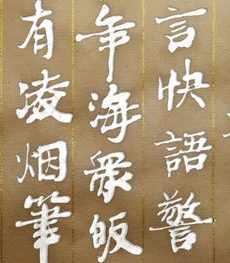 言快語警
年海衆皈
有凌烟筆